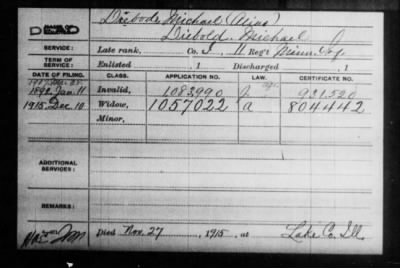 Driebode Michael (Alias)
Diebold, Michael
SERVICE: Late rank, Co. I, 11 Reg't Minn. Inf.
TERM OF SERVICE: Enlisted , 1 Discharged , 1
DATE OF FILING. CLASS. APPLICATION NO. LAW. CERTIFICATE NO.
1892 Jan. 11 Invalid, 1083,990 931,520
1915 Dec 10 Widow, 1057022 a 804442
Minor,
ADDITIONAL SERVICES:
REMARKS:
Died Nov. 27, 1915, at Lake Co. Ill.